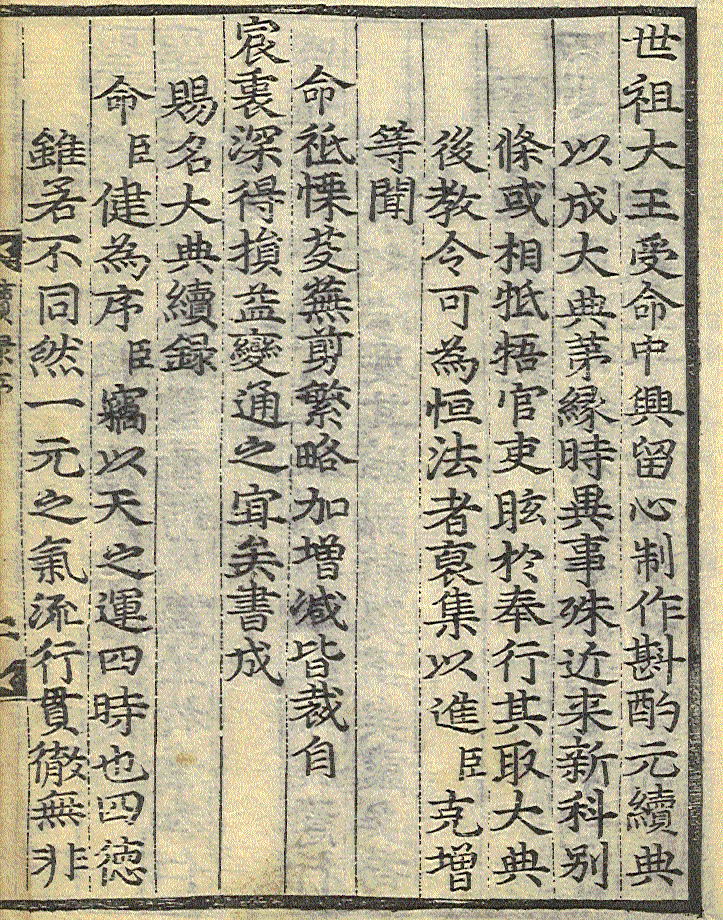 世祖大王受命中興留心制作斟酌元續典
以成大典苐緣時異事殊近来新科别
條或相牴牾官吏眩於奉行其取大典
後教令可為恒法者裒集以進臣克增
等聞
命祗慄芟蕪剪繁略加增減皆裁自
宸衷深得損益變通之宜矣書成
賜名大典續録
命臣健為序臣竊以天之運四時也四德
雖若不同然一元之氣流行貫徹無非